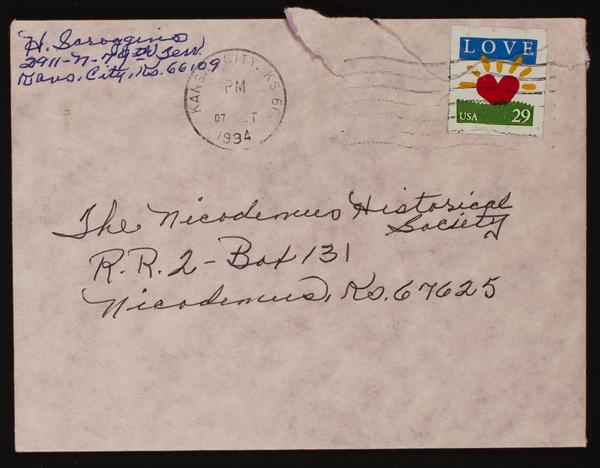 H. Scroggins
2911-N-78th Terr.
Kans. City, Ks. 66109
KANSAS CITY, KS 66
PM
07 OCT
1994
LOVE
USA 29
The Nicodemus Historical
Society
R.R. 2 - Box 131
Nicodemus, Ks. 67625